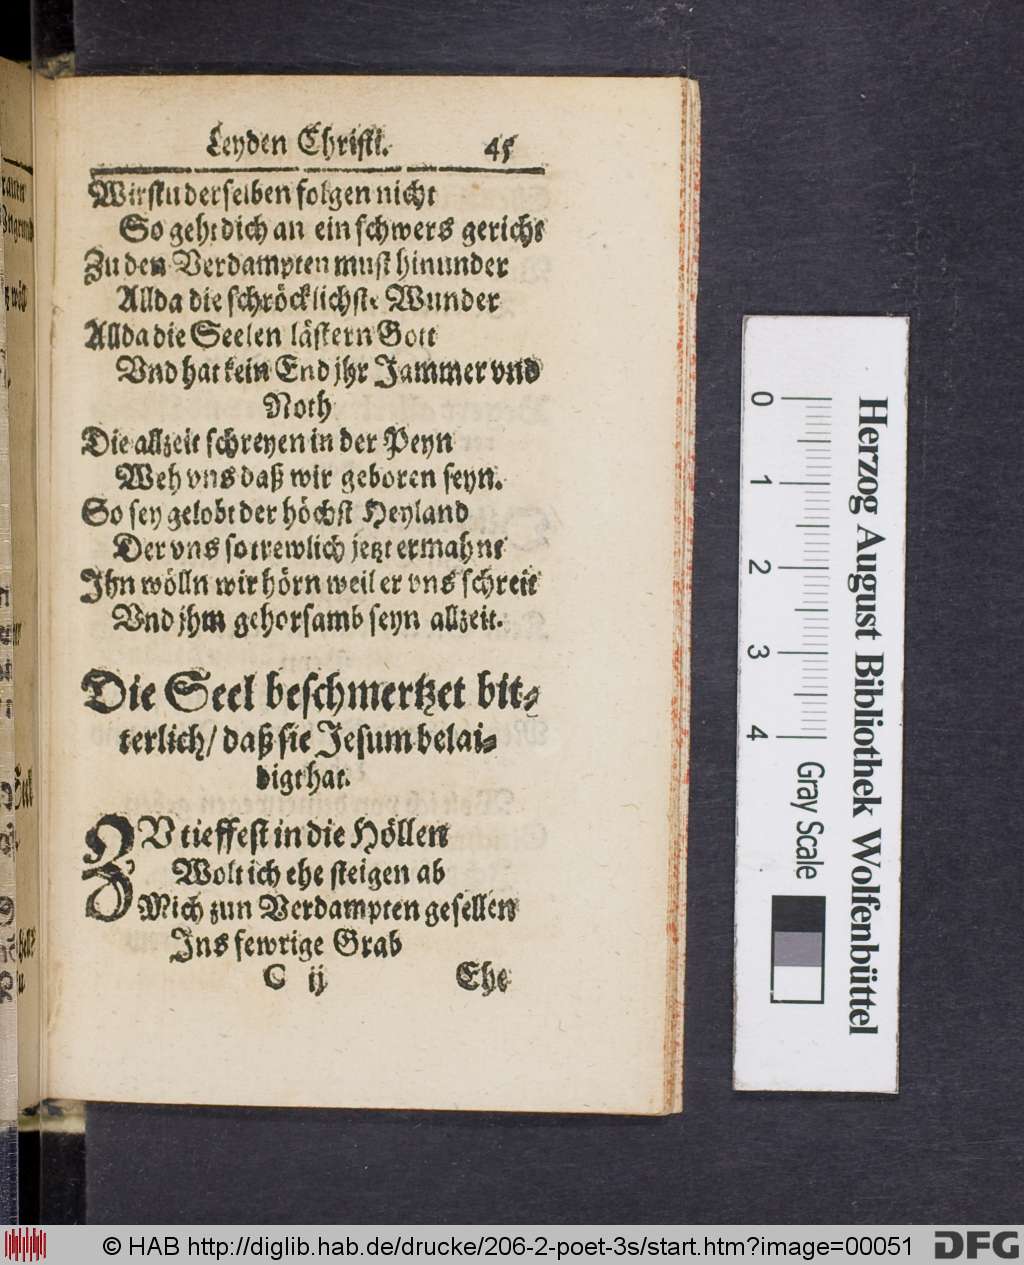 Leyden Christi. 45
Wirstu derselben folgen nicht
So geht dich an ein schwers gericht
Zu den Verdampten must hinunder
Allda die schröcklichste Wunder
Allda die Seelen lästern Gott
Vnd hat kein End jhr Jammer vnd
Noth
Die allzeit schreyen in der Peyn
Weh vns daß wir geboren seyn.
So sey gelobt der höchst Heyland
Der vns so trewlich jetzt ermahnt
Ihn wölln wir hörn weil er vns schreit
Vnd jhm gehorsamb seyn allzeit.
Die Seel beschmertzet bit-
terlich/ daß sie Jesum belai-
digt hat.
ZV tieffest in die Höllen
Wolt ich ehe steigen ab
Mich zun Verdampten gesellen
Ins fewrige Grab
C ij Ehe
0 1 2 3 4
Gray Scale
Herzog August Bibliothek Wolfenbüttel
© HAB http://diglib.hab.de/drucke/206-2-poet-3s/start.htm?image=00051
DFG